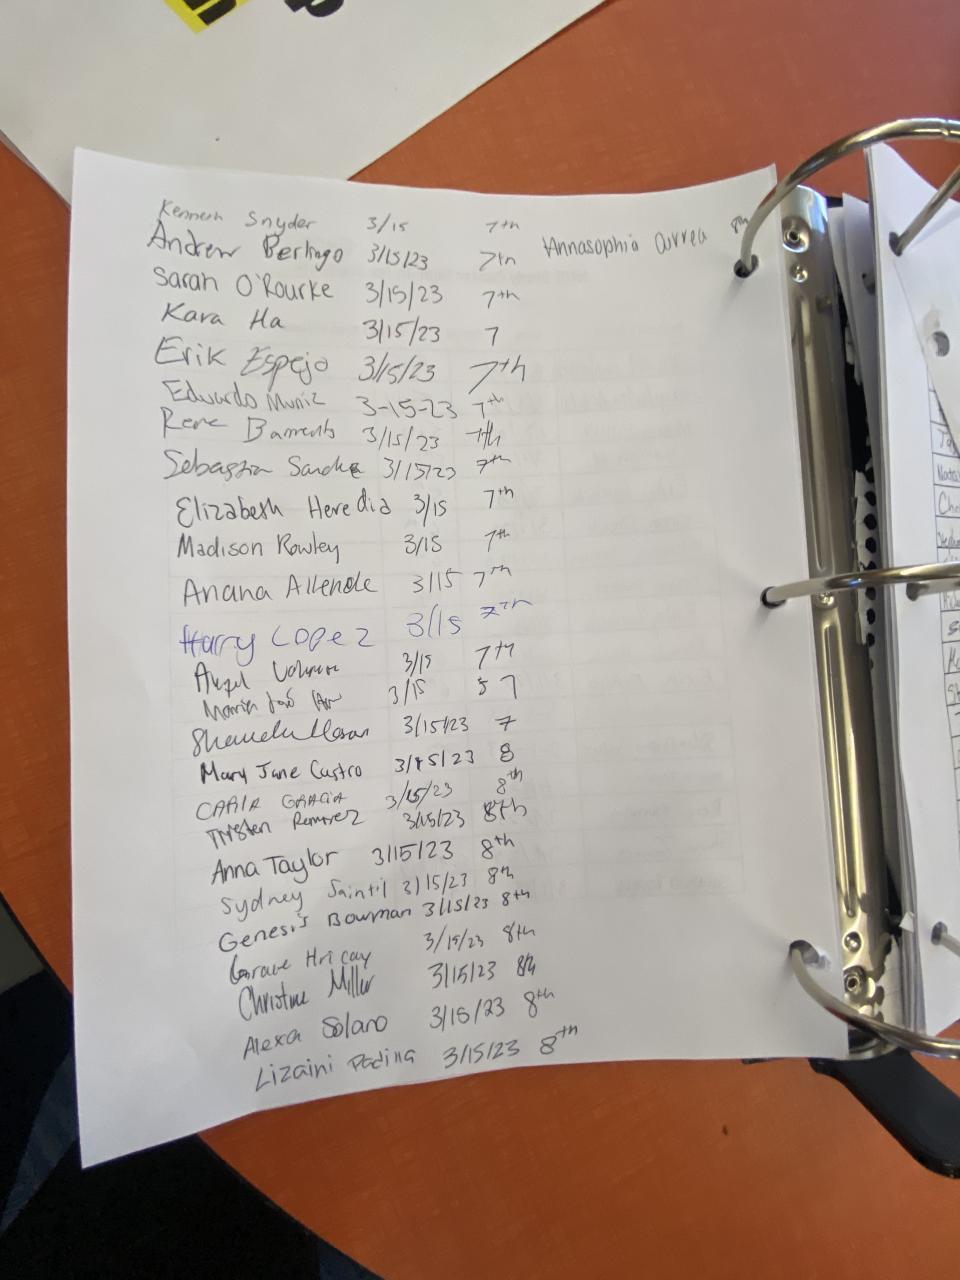 Kenneth Snyder 3/15 7th
Andrew Berlingo 3/15/23 7th Annasophia Currea 8th
Sarah O'Rourke 3/15/23 7th
Kara Ha 3/15/23 7
Erik Espejo 3/15/23 7th
Eduardo Muniz 3-15-23 7th
Rene 3/15/23 7th
Sebastian 3/15/23 7th
Elizabeth Heredia 3/15 7th
Madison Rowley 3/15 7th
Ariana Allende 3/15 7th
Harry Lopez 3/15 7th
Angel 3/15 7th
Maria José 3/15 7
3/15/23 7
Mary Jane Castro 3/15/23 8
CARLA GRACIA 3/15/23 8th
Tristen Ramirez 3/15/23 8th
Anna Taylor 3/15/23 8th
Sydney Saintil 3/15/23 8th
Genesis Bowman 3/15/23 8th
Hricay 3/15/23 8th
Christine Miller 3/15/23 8th
Alexa Solano 3/15/23 8th
Lizaini Padilla 3/15/23 8th